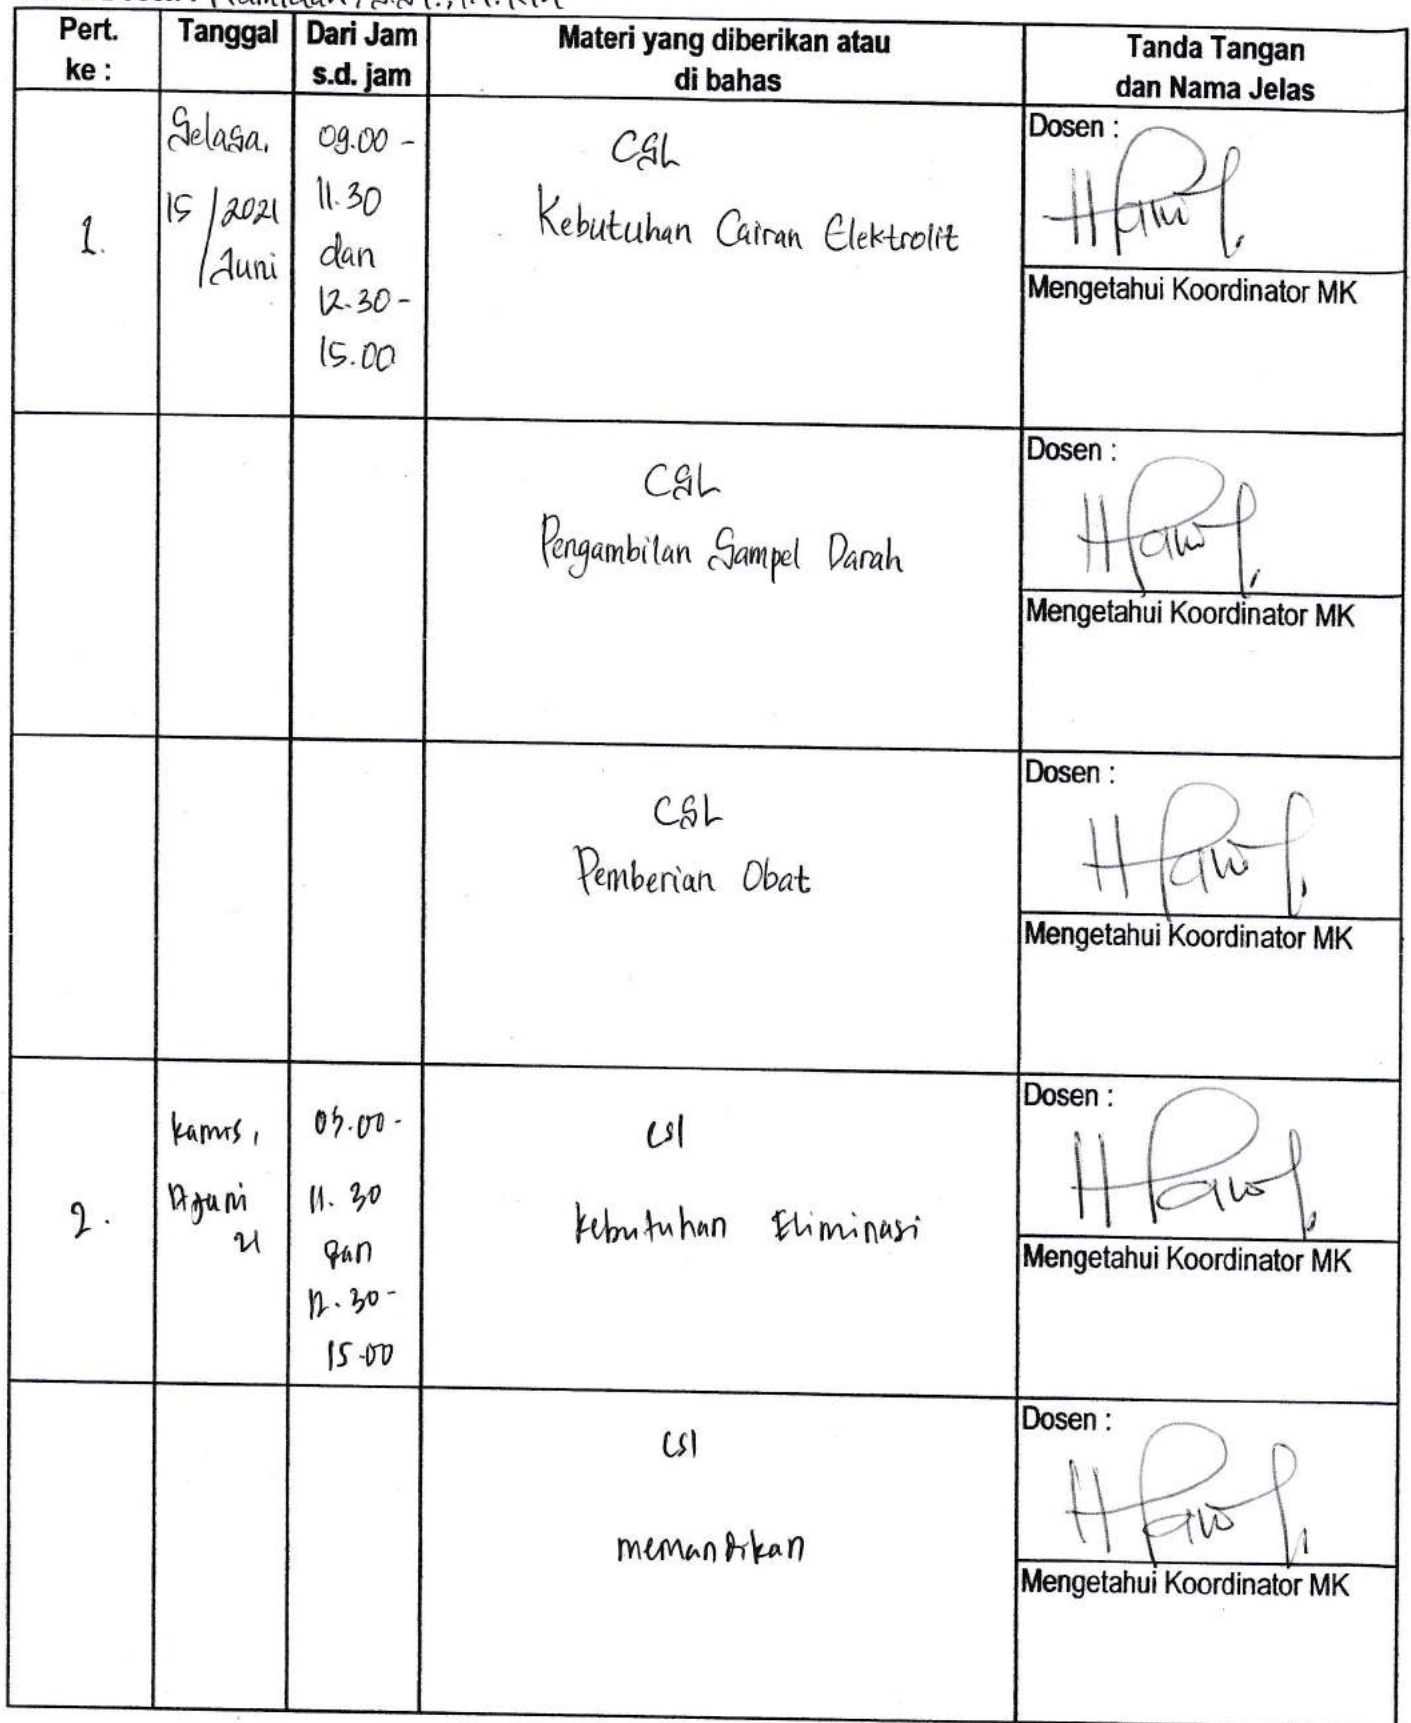 Pert.
ke :
Tanggal
Dari Jam
s.d. jam
Materi yang diberikan atau
di bahas
Tanda Tangan
dan Nama Jelas
1.
Selasa,
15 / 2021
/ Juni
09.00 -
11.30
dan
12.30 -
15.00
CSL
Kebutuhan Cairan Elektrolit
Dosen :
Mengetahui Koordinator MK
CSL
Pengambilan Sampel Darah
Dosen :
Mengetahui Koordinator MK
CSL
Pemberian Obat
Dosen :
Mengetahui Koordinator MK
2.
Kamis,
17 Juni
21
09.00 -
11.30
dan
12.30 -
15.00
csl
Kebutuhan Eliminasi
Dosen :
Mengetahui Koordinator MK
csl
memandikan
Dosen :
Mengetahui Koordinator MK